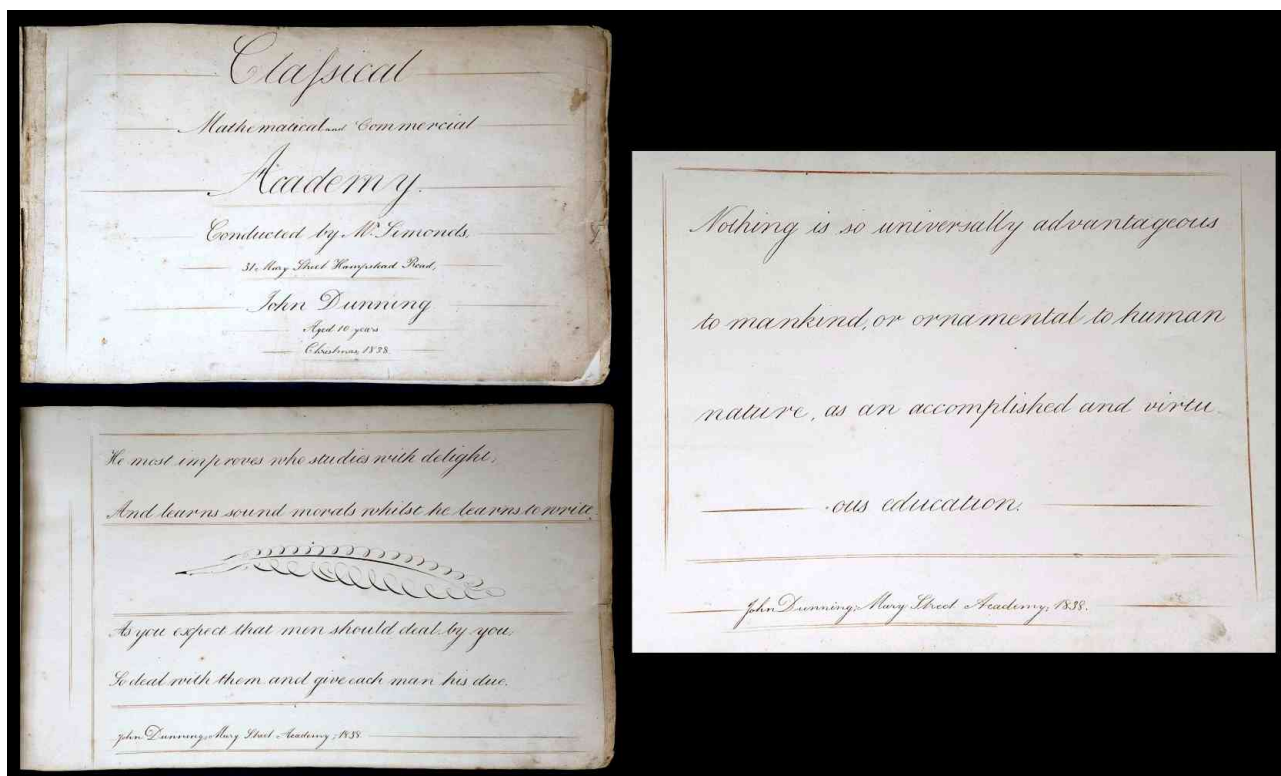 Claſsical
Mathematical and Commercial
Academy.
Conducted by Mr. Simonds,
31, Mary Street Hampstead Road,
John Dunning
Aged 10 years
Christmas, 1838.
He most improves who studies with delight,
And learns sound morals whilst he learns to write.
As you expect that men should deal by you,
So deal with them and give each man his due.
John Dunning, Mary Street Academy, 1838
Nothing is so universally advantageous
to mankind, or ornamental to human
nature, as an accomplished and virtu
ous education.
John Dunning, Mary Street Academy, 1838.